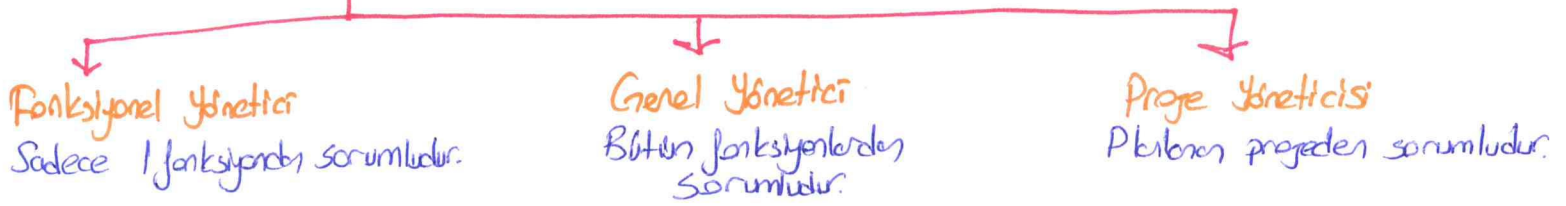 Fonksiyonel Yönetici
Sadece 1 fonksiyondan sorumludur.
Genel Yönetici
Bütün fonksiyonlardan
sorumludur.
Proje Yöneticisi
Planlanan projeden sorumludur.